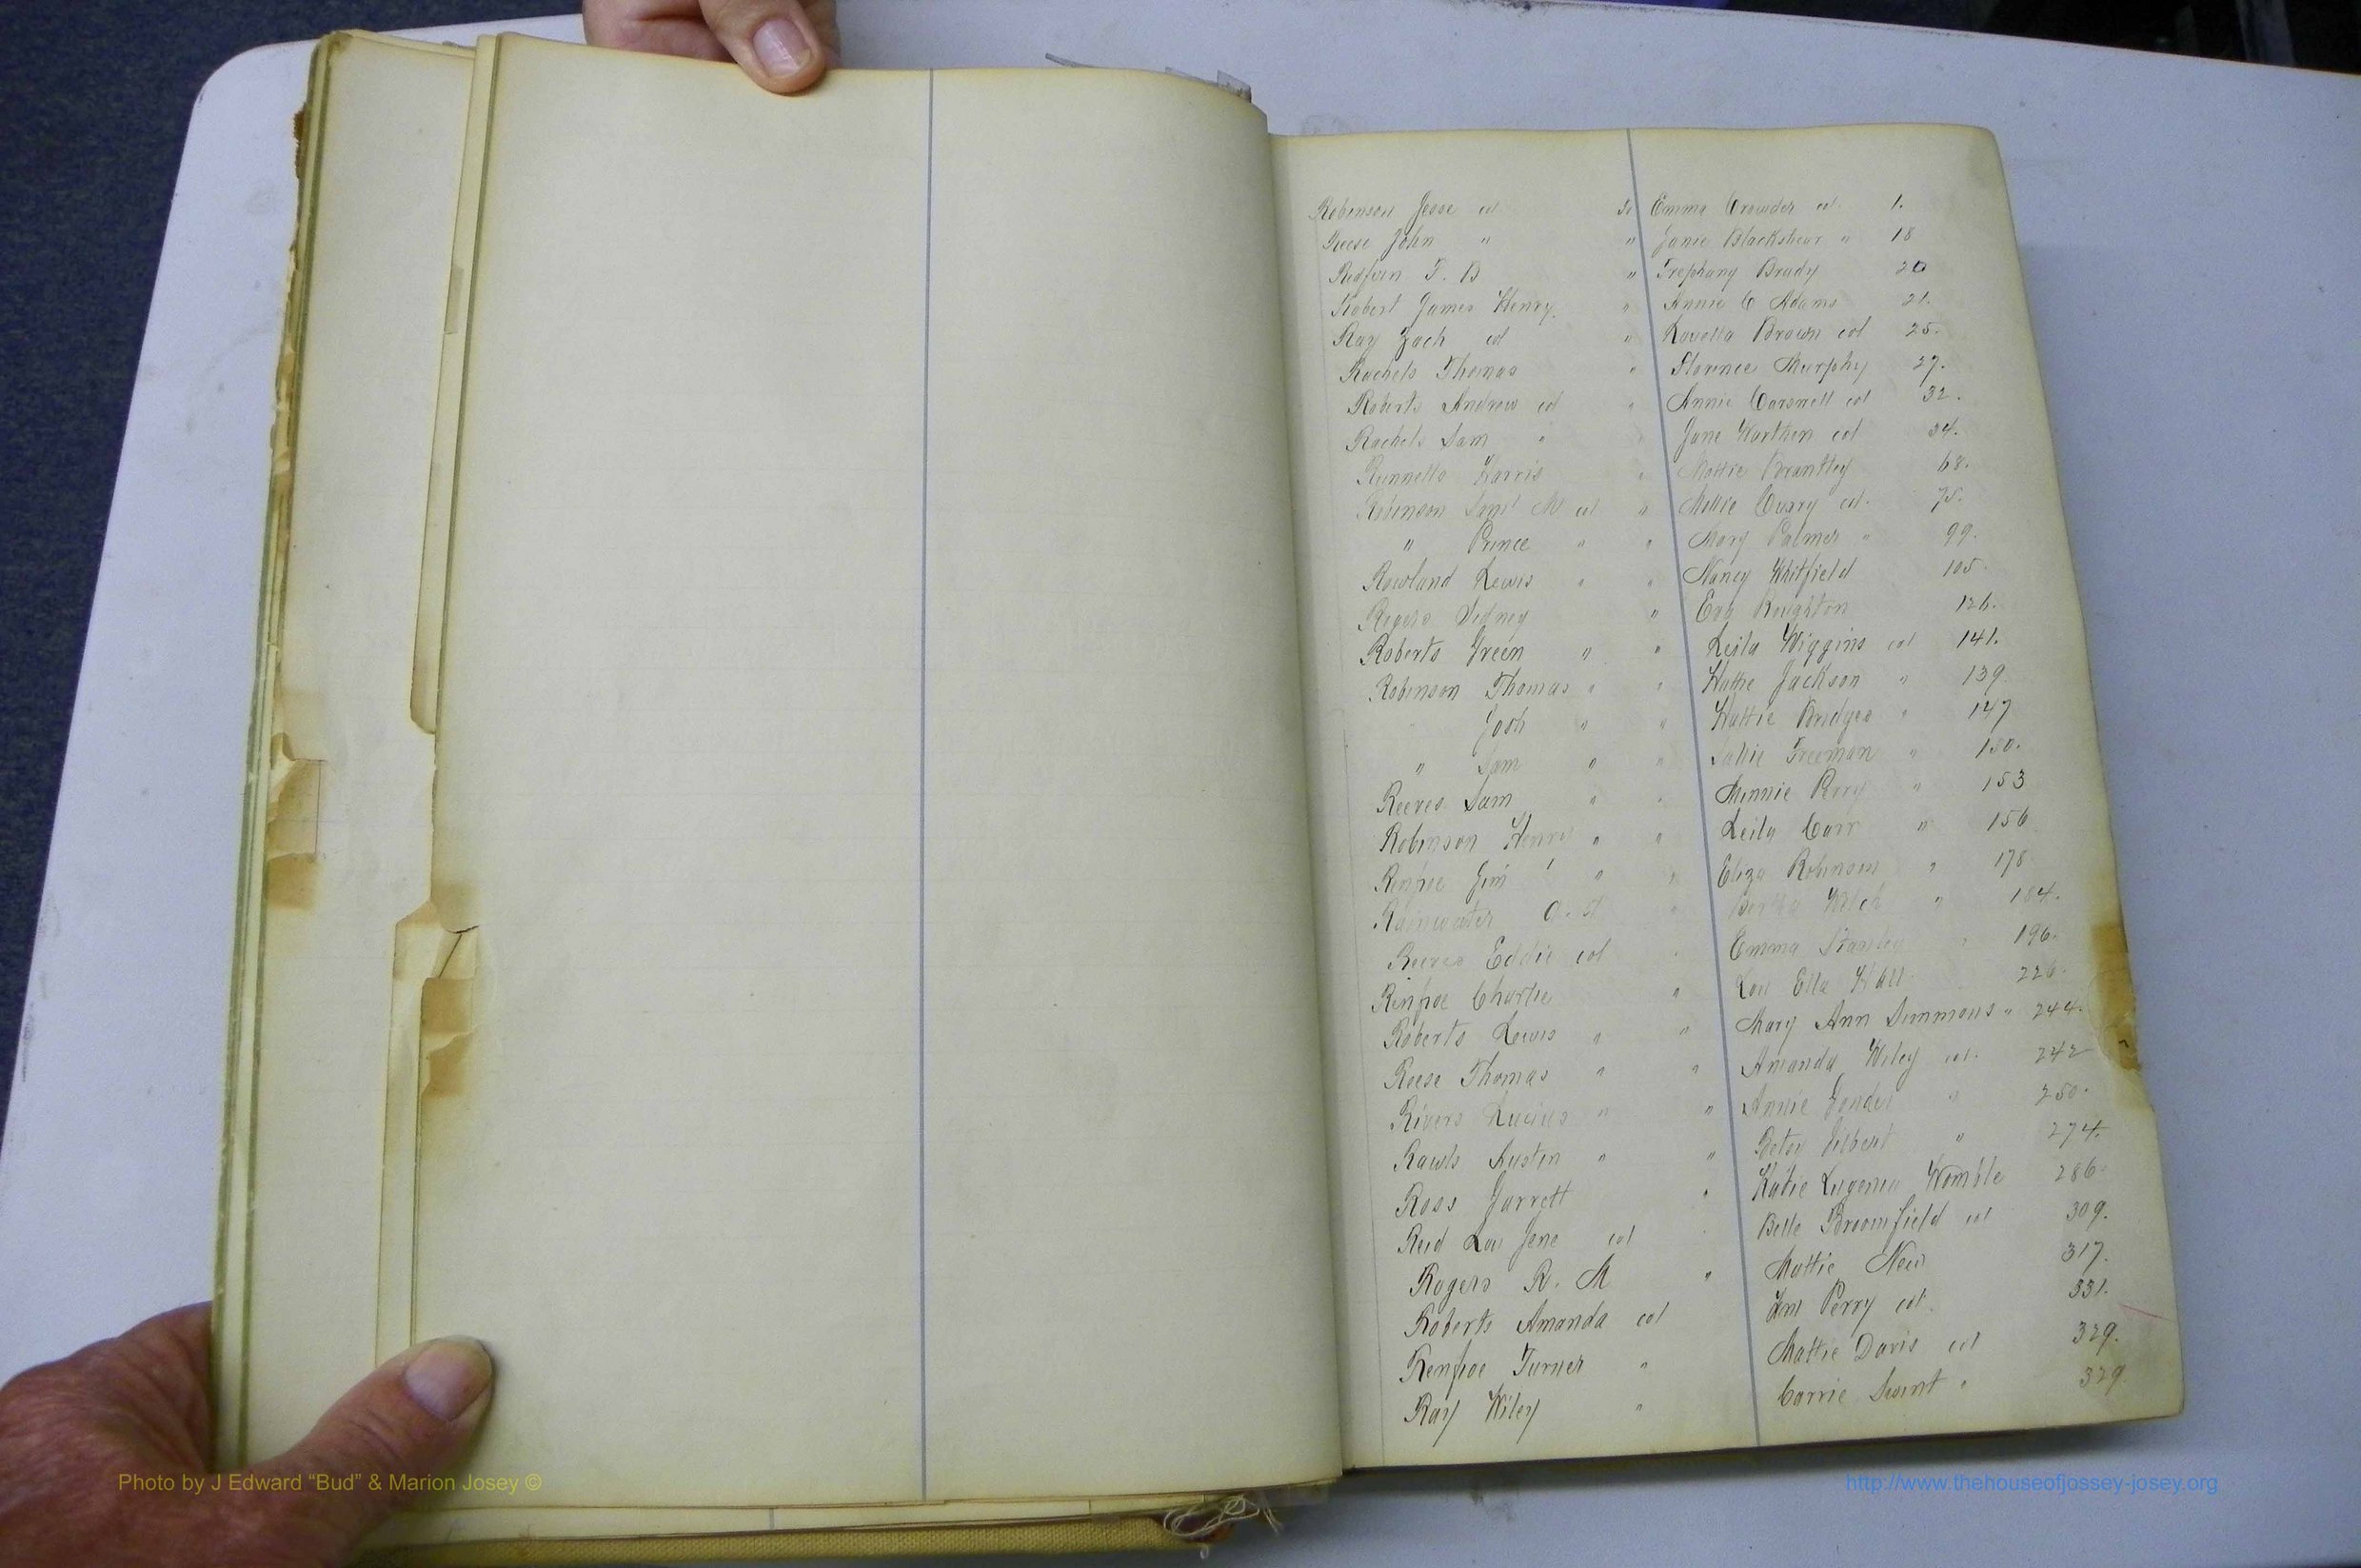 Robinson Jesse col to Emma Crowder col. 1.
Reese John " " Janie Blackshear " 18
T. B " Trephany Brady 20
Robert James Henry. " Annie C Adams 21.
Ray Zach col " Louella Brown col 25.
Rachels Thomas " Florence Murphy 27.
Roberts Andrew col " Annie Carswell col 32.
Rachels Sam " " Jane Warthen col 34.
Runnells Harris " Mattie Brantley 68.
Robinson Saml M col " Mollie Curry col. 75.
" Prince " " Mary Palmer " 99.
Rowland Lewis " " Nancy Whitfield 105.
Rogers Sidney " Eva Roughton 126.
Roberts Green " " Leila Wiggins col 141.
Robinson Thomas " " Hattie Jackson " 139.
Josh " " Hattie Bridges " 147
" Sam " " Sallie Freeman " 150.
Reeves Sam " " Minnie Perry " 153
Robinson Henry " " Leila Carr " 156
Renfroe Jim " " Eliza Robinson " 178
Rainwater O. " Bertha Welch " 184.
Reeves Eddie col " Emma Stanley " 196.
Renfroe Charlie " Lou Ella Hall 226.
Roberts Lewis " " Mary Ann Simmons " 244.
Reese Thomas " " Amanda Wiley col. 242
Rivers Lucius " " Annie " 250.
Rawls Austin " " Betsy Gilbert " 274.
Ross Garrett " Katie Eugenia Womble 286.
Reid Lou Jene col Belle Broomfield col 309.
Rogers R. M " Mattie New 317.
Roberts Amanda col Wm Perry col. 331.
Renfroe Turner " Mattie Davis col 329.
Ray Wiley " Carrie Swint " 329
Photo by J Edward “Bud” & Marion Josey ©
http://www.thehouseofjossey-josey.org